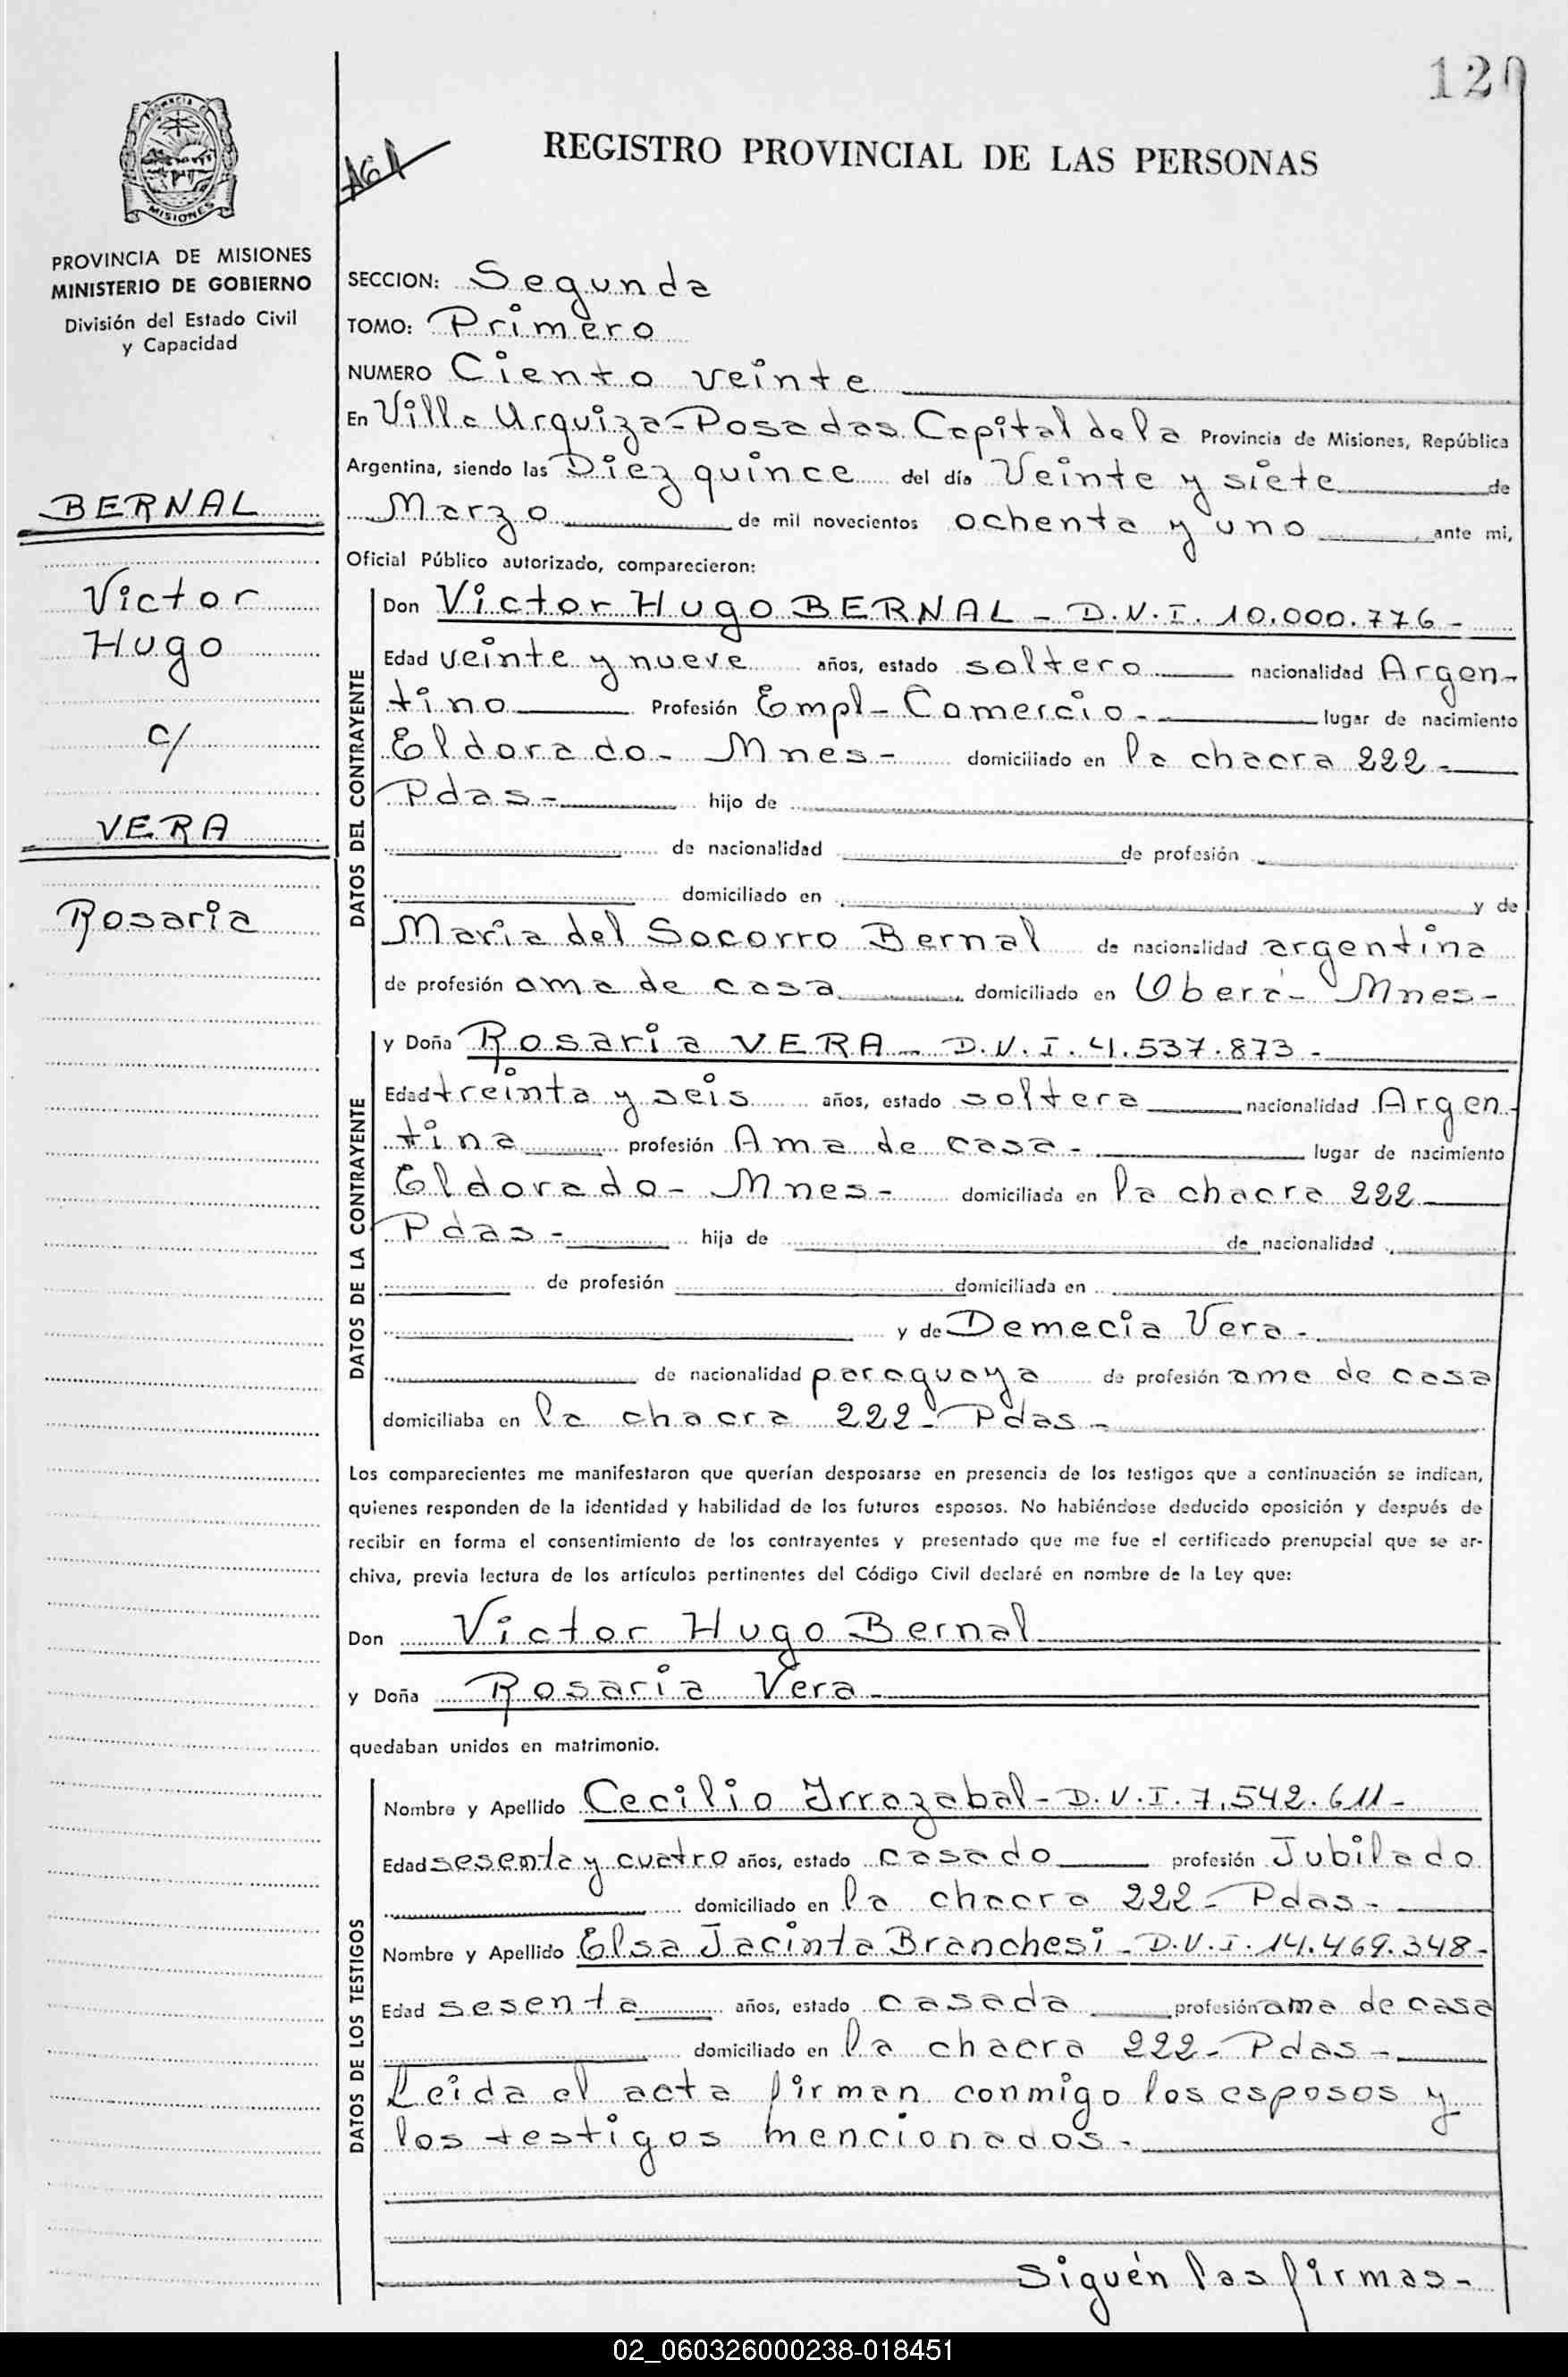 120
REGISTRO PROVINCIAL DE LAS PERSONAS
PROVINCIA DE
MISIONES
PROVINCIA DE MISIONES
MINISTERIO DE GOBIERNO
División del Estado Civil
y Capacidad
BERNAL
Victor
Hugo
c/
VERA
Rosaria
SECCION: Segunda
TOMO: Primero
NUMERO Ciento veinte
En Villa Urquiza-Posadas Capital de la Provincia de Misiones, República
Argentina, siendo las Diez quince del día Veinte y siete de
Marzo de mil novecientos ochenta y uno, ante mi,
Oficial Público autorizado, comparecieron:
DATOS DEL CONTRAYENTE
Don Victor Hugo BERNAL - D.N.I. 10.000.776 -
Edad veinte y nueve años, estado soltero nacionalidad Argen-
tino Profesión Empl- Comercio - lugar de nacimiento
Eldorado- Mnes- domiciliado en la chacra 222 -
Pdas - hijo de
de nacionalidad de profesión
domiciliado en y de
Maria del Socorro Bernal de nacionalidad argentina
de profesión ama de casa domiciliado en Oberá- Mnes-
DATOS DE LA CONTRAYENTE
y Doña Rosaria VERA - D.N.I. 4.537.873 -
Edad treinta y seis años, estado soltera nacionalidad Argen
tina profesión Ama de casa - lugar de nacimiento
Eldorado- Mnes- domiciliada en la chacra 222
Pdas - hija de de nacionalidad
de profesión domiciliada en
y de Demecia Vera -
de nacionalidad paraguaya de profesión ama de casa
domiciliaba en la chacra 222- Pdas -
Los comparecientes me manifestaron que querían desposarse en presencia de los testigos que a continuación se indican,
quienes responden de la identidad y habilidad de los futuros esposos. No habiéndose deducido oposición y después de
recibir en forma el consentimiento de los contrayentes y presentado que me fue el certificado prenupcial que se ar-
chiva, previa lectura de los artículos pertinentes del Código Civil declaré en nombre de la Ley que:
Don Victor Hugo Bernal
y Doña Rosaria Vera
quedaban unidos en matrimonio.
DATOS DE LOS TESTIGOS
Nombre y Apellido Cecilio Irrazabal - D.N.I. 7.542.611 -
Edad sesenta y cuatro años, estado casado profesión Jubilado
domiciliado en la chacra 222 - Pdas -
Nombre y Apellido Elsa Jacinta Branchesi - D.N.I. 14.469.348 -
Edad sesenta años, estado casada profesión ama de casa
domiciliado en la chacra 222 - Pdas -
Leida el acta firman conmigo los esposos y
los testigos mencionados -
Siguén las firmas -
02_060326000238-018451